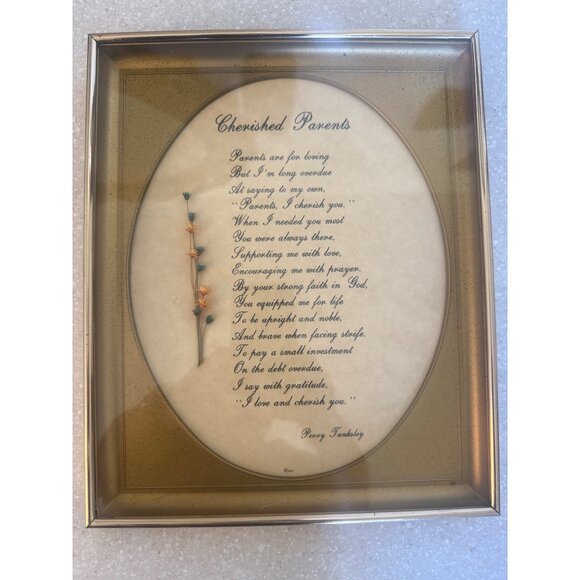 Cherished Parents
Parents are for loving
But I'm long overdue
At saying to my own,
"Parents, I cherish you."
When I needed you most
You were always there,
Supporting me with love,
Encouraging me with prayer.
By your strong faith in God,
You equipped me for life
To be upright and noble,
And brave when facing strife.
To pay a small investment
On the debt overdue,
I say with gratitude,
"I love and cherish you."
Perry Tanksley